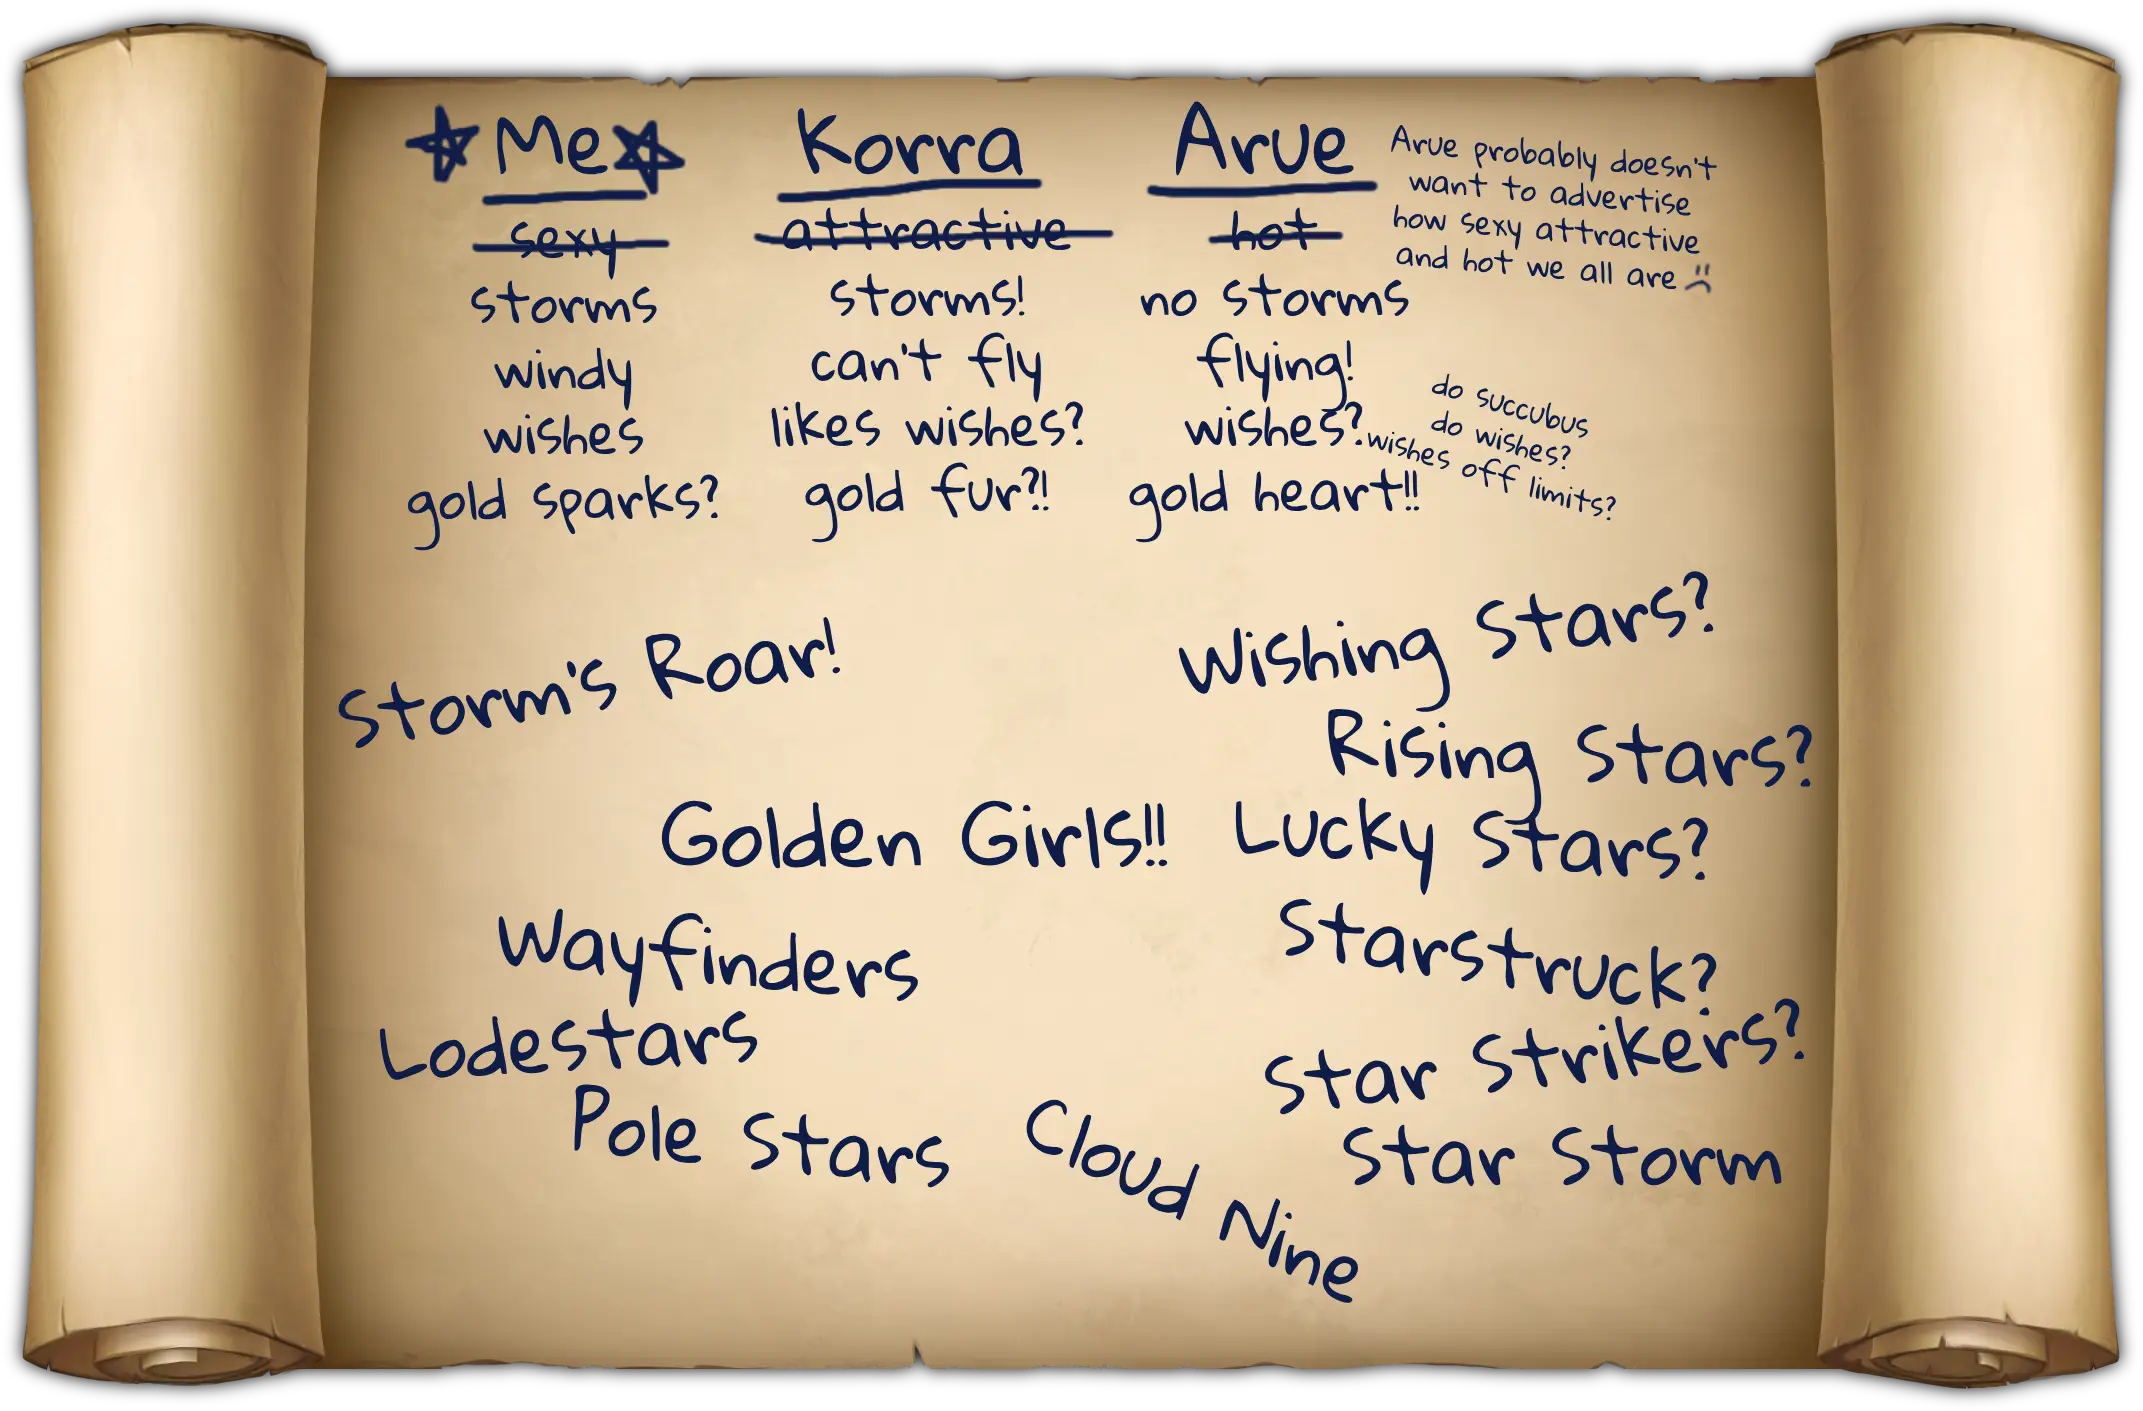 Me
sexy
storms
windy
wishes
gold sparks?
Korra
attractive
storms!
can't fly
likes wishes?
gold fur?!
Arue
hot
no storms
flying!
wishes?
gold heart!!
Arue probably doesn't
want to advertise
how sexy attractive
and hot we all are
do succubus
do wishes?
wishes off limits?
Storm's Roar!
Golden Girls!!
Wayfinders
Lodestars
Pole Stars
Cloud Nine
Wishing Stars?
Rising Stars?
Lucky Stars?
Starstruck?
Star Strikers?
Star Storm